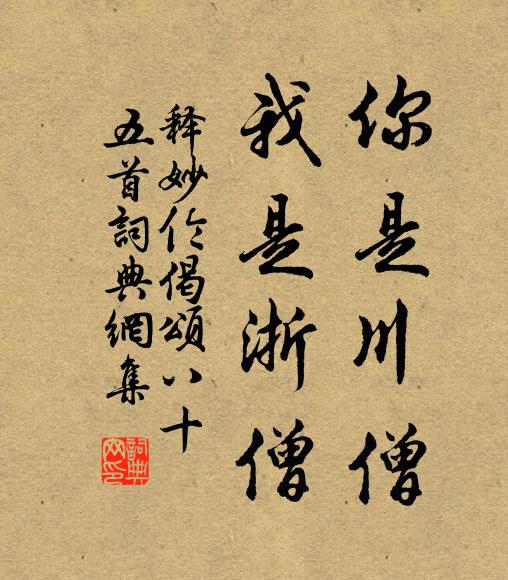 你是川僧
我是浙僧
释妙伦偈頌八十
五首詞典網集
詞典
网印